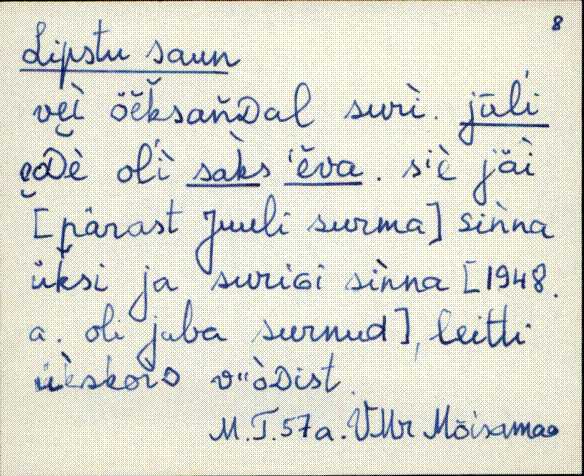 8
Lipstu saun
vèi öèksanDal surì. jūĺi
eDè oĺì sàks 'ĕva. s'è jäì
[pärast Juuli surma] sìnna
üksi ja suriGi sìnna [1948.
a. oli juba surnud], leitti
ükskorD v"òDist.
M.T. 57a. VMr Mõisamaa